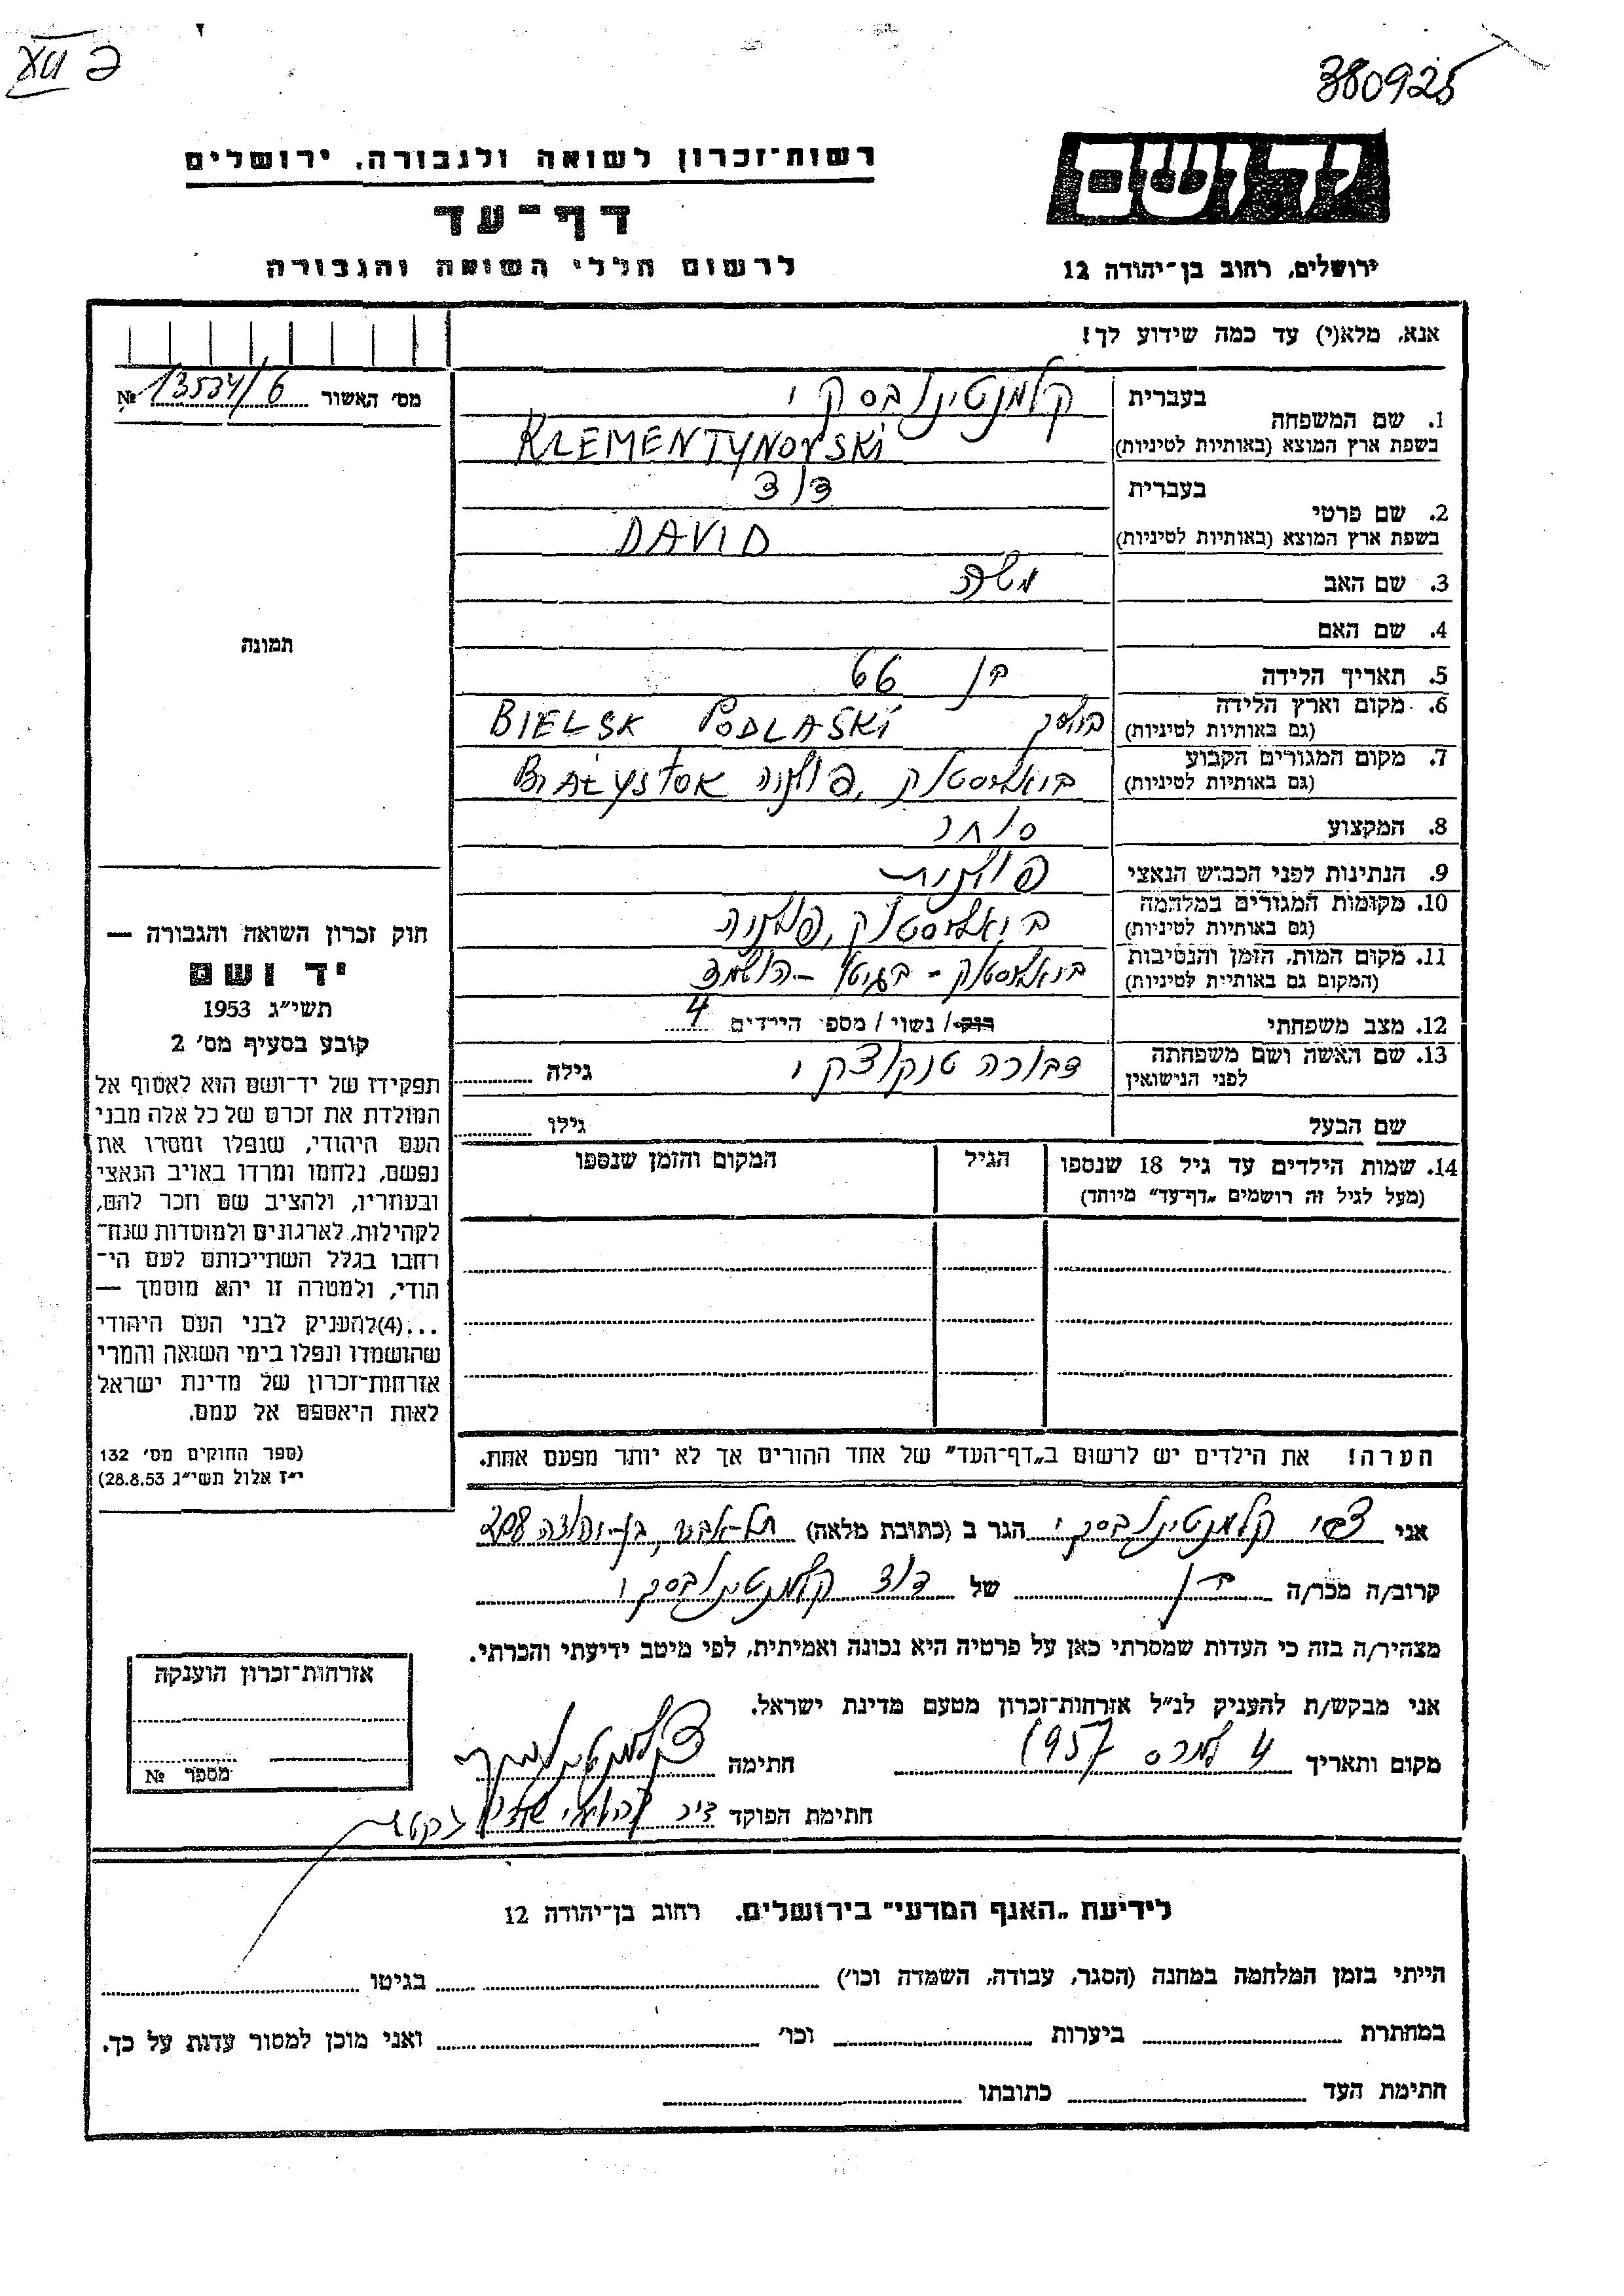 380925
יד ושם
ירושלים, רחוב בן־יהודה 12
רשות־זכרון לשואה ולגבורה, ירושלים
דף־עד
לרשום חללי השואה והגבורה
אנא, מלא(י) עד כמה שידוע לך!
מס' האשור № 13534/6
1. שם המשפחה
בעברית קלמנטינובסקי
בשפת ארץ המוצא (באותיות לטיניות) KLEMENTYNOVSKI
2. שם פרטי
בעברית דוד
בשפת ארץ המוצא (באותיות לטיניות) DAVID
3. שם האב משה
4. שם האם
5. תאריך הלידה בן 66
6. מקום וארץ הלידה
(גם באותיות לטיניות) BIELSK PODLASKI
7. מקום המגורים הקבוע
(גם באותיות לטיניות) ביאליסטוק, פולניה BIAŁYSTOK
8. המקצוע סוחר
9. הנתינות לפני הכבוש הנאצי פולנית
10. מקומות המגורים במלחמה
(גם באותיות לטיניות) ביאליסטוק, פולניה
11. מקום המות, הזמן והנסיבות
(המקום גם באותיית לטיניות) ביאליסטוק - בגיטו - הושמד
12. מצב משפחתי רוק/ נשוי / מספ' הירדים 4
13. שם האשה ושם משפחתה
לפני הנישואין דבורה טנקוצקי גילה
שם הבעל גילו
14. שמות הילדים עד גיל 18 שנספו
(מעל לגיל זה רושמים „דף־עד" מיוחד)
הגיל
המקום והזמן שנספו
הערה! את הילדים יש לרשום ב„דף־העד" של אחד ההורים אך לא יותר מפעם אחת.
תמונה
חוק זכרון השואה והגבורה —
יד ושם
תשי"ג 1953
קובע בסעיף מס' 2
תפקידו של יד־ושם הוא לאסוף אל
המולדת את זכרם של כל אלה מבני
העם היהודי, שנפלו ומסרו את
נפשם, נלחמו ומרדו באויב הנאצי
ובעוזריו, ולהציב שם וזכר להם,
לקהילות, לארגונים ולמוסדות שנח־
רחבו בגלל השתייכותם לעם הי־
הודי, ולמטרה זו יהא מוסמך —
...(4)להעניק לבני העם היהודי
שהושמדו ונפלו בימי השואה והמרי
אזרחות־זכרון של מדינת ישראל
לאות היאספם אל עמם.
(ספר החוקים מס' 132
י"ז אלול תשי"ג 28.8.53)
אני צבי קלמנטינובסקי הגר ב (כתובת מלאה) תל-אביב, בן-יהודה
קרוב/ה מכר/ה בן של דוד קלמנטינובסקי
מצהיר/ה בזה כי העדות שמסרתי כאן על פרטיה היא נכונה ואמיתית, לפי מיטב ידיעתי והכרתי.
אני מבקש/ת להעניק לנ"ל אזרחות־זכרון מטעם מדינת ישראל.
מקום ותאריך 4 למרס 1957 חתימה
חתימת הפוקד
אזרחות־זכרון הוענקה
מספר №
לידיעת „האגף המדעי" בירושלים. רחוב בן־יהודה 12
הייתי בזמן המלחמה במחנה (הסגר, עבודה, השמדה וכו') בגיטו
במחתרת ביערות וכו' ואני מוכן למסור עדות על כך.
חתימת העד כתובתו